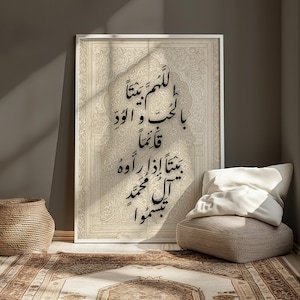 اللَّهُمَّ بَيْتًا
بالحُبِّ و الوُدِّ
قَائِمًا
بَيْتًا إذا رأوهُ
آلُ مُحمَّدٍ
تبسَّموا